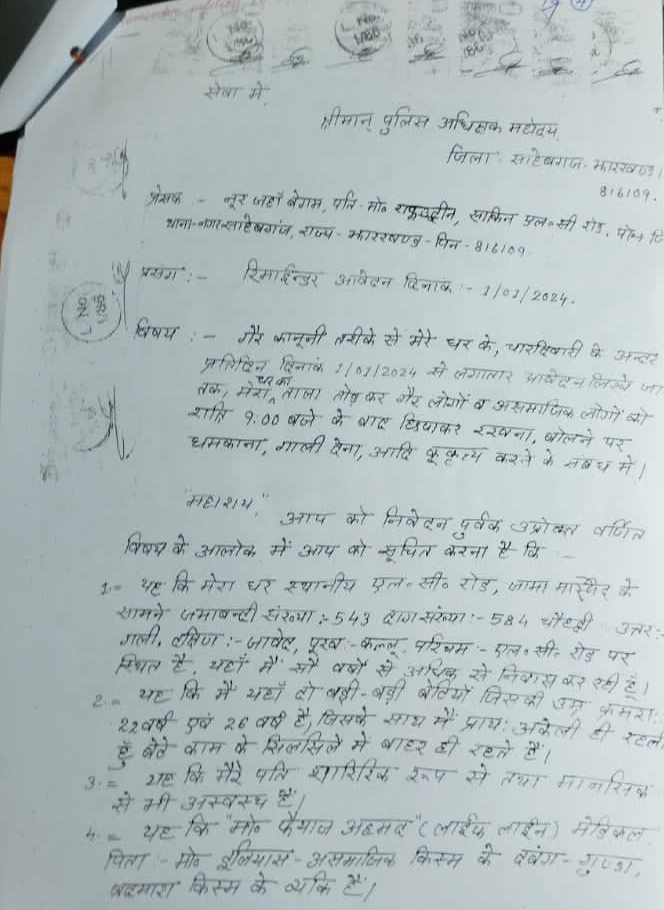 सेवा में,
श्रीमान् पुलिस अधिक्षक महोदय,
जिला - साहेबगंज - झारखण्ड।
816109.
प्रेसक :- नूर जहाँ बेगम, पति - मो० साकिन एल० सी रोड,
थाना-नगर साहेबगंज, राज्य - झारखण्ड - पिन - 816109
प्रसंग :- रिमाईन्डर आवेदन दिनांक :- 1/01/2024.
विषय :- गैर कानूनी तरीके से मेरे घर के, चारदिवारी के अन्दर
प्रतिदिन दिनांक 1/01/2024 से लगातार आवेदन लिखे जा
तक, मेरा घर का ताला तोड़ कर गैर लोगों व असमाजिक लोगों को
रात्रि 9:00 बजे के बाद छिपाकर रखना, बोलने पर
धमकाना, गाली देना, आदि कूकृत्य करने के संबध में।
"महाशय,"
आप को निवेदन पुर्वक उप्रोक्त वर्णित
विषय के आलोक में आप को सूचित करना है कि -
1.= यह कि मेरा घर स्थानीय एल० सी० रोड, जामा मस्जिद के
सामने जमाबन्दी संख्या :- 543 दाग संख्या :- 584 चौहद्दी उत्तर :-
गली, दक्षिण :- जावेद, पूरब :- कल्लू, पश्चिम :- एल० सी० रोड पर
स्थित है, यहाँ मैं सौ वर्षों से अधिक से निवास कर रही हूँ।
2.= यह कि मै यहाँ दो बड़ी-बड़ी बेटियों जिसकी उम्र क्रमशः
22 वर्ष एवं 26 वर्ष है, जिसके साथ मैं प्रायः अकेली ही रहती
हूँ बेटे काम के सिलसिले में बाहर ही रहते हैं।
3.= यह कि मेरे पति शारिरिक रूप से तथा मानसिक
से भी अस्वस्थ हैं।
4.= यह कि "मो० फैयाज अहमद" (लाईफ लाईन) मेडिकल
पिता :- मो० इलियास - असमाजिक किस्म के दबंग - गुण्डा,
बदमाश किस्म के व्यक्ति हैं।